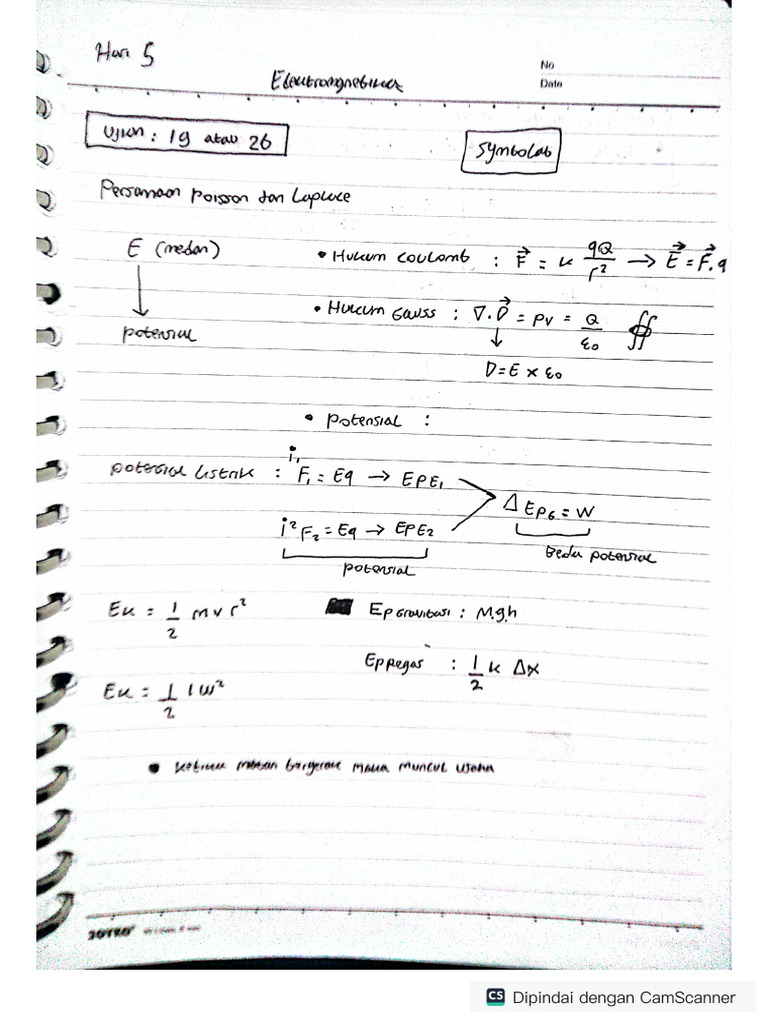 Hari 5
No
Elektromagnetika
Date
Ujian : 19 atau 26
Symbolab
Persamaan Poisson dan Laplace
E (medan)
↓
potensial
• Hukum Coulomb : F⃗ = k qQ/r² → E⃗ = F⃗.q
• Hukum Gauss : ∇.D⃗ = ρv = Q/ε₀ ∯
↓
D = E × ε₀
• Potensial :
potensial listrik : i₁ F₁ = Eq → EPE₁
i² F₂ = Eq → EPE₂
potensial
Δ EPG = W
beda potensial
Ek = 1/2 m v r²
EP Gravitasi : M.g.h
EP Pegas : 1/2 k Δx
Ek = 1/2 I ω²
• Ketika muatan bergerak maka muncul usaha
CS Dipindai dengan CamScanner